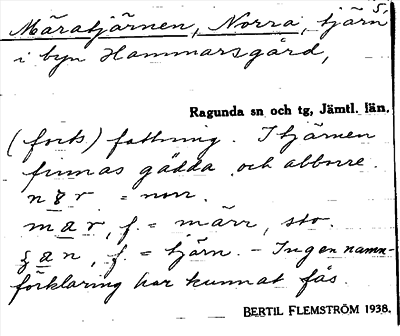 5.
Märatjärnen, Norra, tjärn
i byn Hammarsgård,
Ragunda sn och tg, Jämtl. län.
(forts) fattning. I tjärnen
finnas gädda och abborre.
nɞr = norr.
mar, f. = märr, sto.
ʒan, f. = tjärn. - Ingen namn-
förklaring har kunnat fås.
BERTIL FLEMSTRÖM 1938.